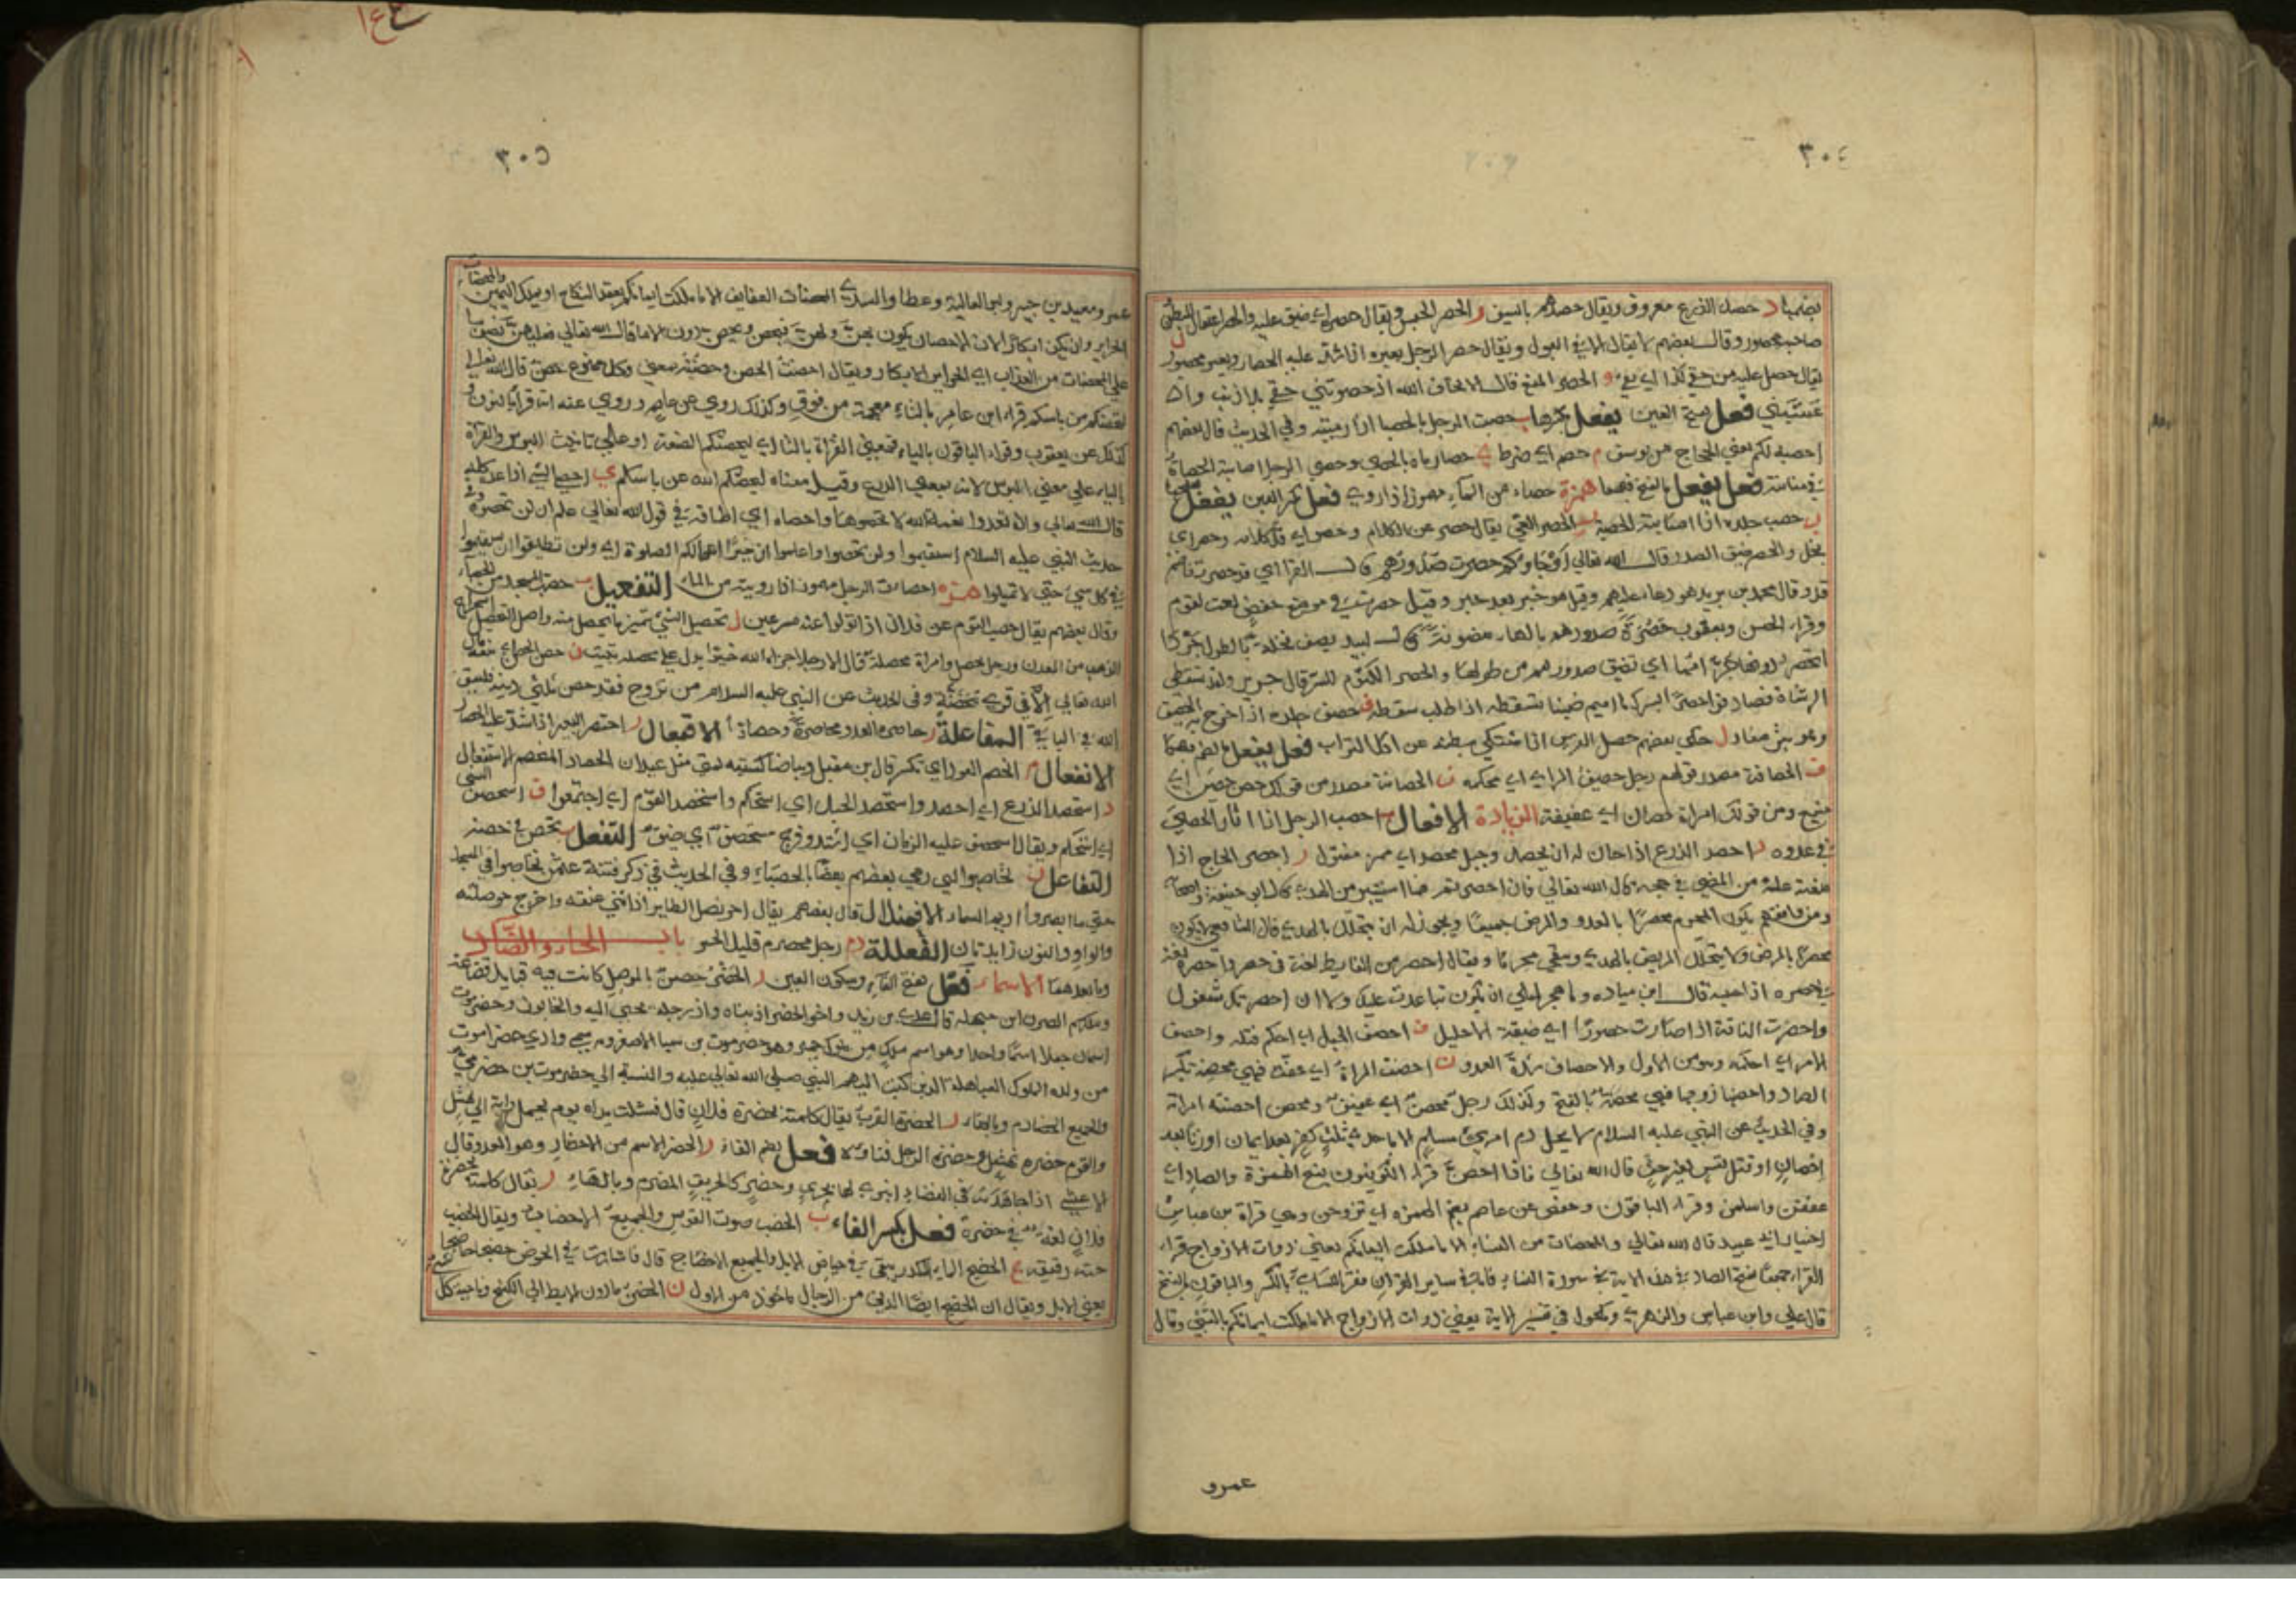 ٣٠٤
بضمها د حصد الزرع معروف ويقال حصدهم بالسيف ر الحصر الحبس ويقال حصره اي ضيق عليه والحصر اعتقال البطن
صاحبه محصور وقال بعضهم لا يقال الا في البول ويقال حصر الرجل بعيره اذا شد عليه الحصار وبعير محصور ل
يقال حصل عليه من حقي كذا اي بقي و الحصو المنع قال الا تخاف الله اذ حصوتني حقي بلا ذنب واذ
عنيتني فعل بفتح العين يفعل بكسرها ب حصبت الرجل بالحصبا اذا رميته وفي الحديث قال بعضهم
احصبه لكم يعني الحجاج بن يوسف م حصم اي ضرط ي حصاه رماه بالحصى وحصي الرجل اصابته الحصاة
في مثانته فعل يفعل بالفتح فيهما همزة حصاء من الماء مهموز اذا روي فعل بكسر العين يفعل بفتحها
ب حصب جلده اذا اصابته الحصبة ر الحصر العي يقال حصر عن الكلام وحصر اي قل كلامه وحصر اي
بخل والحصر ضيق الصدر قال الله تعالى او جاؤكم حصرت صدورهم قال الفرا اي قد حصرت فاضمر
قد وقال محمد بن يزيد هو دعاء عليهم وقيل هو خبر بعد خبر وقيل حصرت في موضع خفض نعت لقوم
وقراء الحسن ويعقوب حصرة صدورهم بالهاء منصوبة قال لبيد يصف نخلة بالطول
اي تضيق صدورهم من طولها والحصر الكتوم للسر قال جرير ولقد تسقطني
الوشاة فصادفوا حصرا بسرك يا اميم ضنينا تسقطه اذا طلب سقطه ف حصف جلده اذا خرج به الحصف
وهو بثر صغار ل حكى بعضهم حصل الفرس اذا اشتكى بطنه عن اكل التراب فعل يفعل بالضم فيهما
ف الحصافة مصدر قولهم رجل حصيف الراي اي محكمه ن الحصانة مصدر من قولك حصن حصين اي
منيع ومن قولك امراة حصان اي عفيفة الزيادة الافعال ب احصب الرجل اذا اثار الحصى
في عدوه د احصد الزرع اذا حان له ان يحصد وحبل محصد اي ممر مفتول ر احصر الحاج اذا
منعته علة من المضي في حجه قال الله تعالى فان احصرتم فما استيسر من الهدي قال ابو حنيفة واصحابه
ومن وافقهم يكون المحرم محصرا بالعدو والمرض جميعا ويجوز له ان يتحلل بالهدي قال الشافعي لا يكون
محصرا بالمرض ولا يتحلل المريض بالهدي ويبقى محرما ويقال احصر من الغايط لغة في حصر واحصره لغة
في حصره اذا حبسه قال ابن مياده وما هجر ليلى ان تكون تباعدت عليك ولا ان احصرتك شغول
واحصرت الناقة اذا صارت حصورا اي ضيقة الاحليل ف احصف الحبل اي احكم فتله واحصف
الامر اي احكمه وهو من الاول والاحصاف شدة العدو ن احصنت المراة اي عفت فهي محصنة بكسر
الصاد واحصنها زوجها فهي محصنة بالفتح وكذلك رجل محصن اي عفيف ومحصن احصنته امراته
وفي الحديث عن النبي عليه السلام لا يحل دم امرئ مسلم الا باحدى ثلث كفر بعد ايمان او زنا بعد
احصان او قتل نفس بغير حق قال الله تعالى فاذا احصن قراء الكوفيون بفتح الهمزة والصاد اي
عففن واسلمن وقراء الباقون وحفص عن عاصم بضم الهمزه اي تزوجن وهي قراة بن عباس
اختيار ابي عبيد قال الله تعالى والمحصنات من النساء الا ما ملكت ايمانكم يعني ذوات الازواج قراء
القراء جميعا بفتح الصاد في هذه الاية في سورة النساء فاما في ساير القران فقرا الكسائي بالكسر والباقون بالفتح
قال علي وابن عباس والزهري ومكحول في تفسير الاية يعني ذوات الازواج الا ما ملكت ايمانكم بالسبي وقال
عمرو
٣٠٥
عمر وسعيد بن جبير وابو العالية وعطا والسدي المحصنات العفايف الا ما ملكت ايمانكم بعقد النكاح او ملك اليمين والمحصنات
الحراير وان يكن ابكارا لان الاحصان يكون بهن
على المحصنات من العذاب اي الحراير الابكار ويقال احصنت الحصن وحصنته بمعنى وكل ممنوع محصن قال الله تعالى
لتحصنكم من باسكم قراء ابن عامر بالتاء معجمة من فوق وكذلك روي عن عاصم وروي عنه انه قرا بالنون و
كذلك عن يعقوب وقراء الباقون بالياء فمعنى القراة بالتاء اي لتحصنكم الصنعة او على تانيث اللبوس والقراة
بالياء على معنى اللبوس لانه بمعنى الدرع وقيل معناه ليحصنكم الله من باسكم ي احصى الشيء اذا عده كله
قال الله تعالى وان تعدوا نعمة الله لا تحصوها واحصاه اي اطاقه في قول الله تعالى علم ان لن تحصوه وفي
حديث النبي عليه السلام استقيموا ولن تحصوا واعلموا ان خير اعمالكم الصلوة اي ولن تطيقوا ان تستقيموا
في كل شيء حتى لا تميلوا همزه احصات الرجل مهموز اذا رويته من الماء التفعيل ب حصب المسجد من الحصباء
وقال بعضهم يقال حصب القوم عن فلان اذا تولوا عنه مسرعين ل تحصيل الشيء تميز ما يحصل منه واصل التحصيل استخراج
الذهب من المعدن ورجل محصل وامراة محصلة قال الا رجلا جزاه الله خيرا يدل على محصلة تبيت ن حصن الحصن منعه قال
الله تعالى الا في قرى محصنة وفي الحديث عن النبي عليه السلام من تزوج فقد حصن ثلثي دينه فليتق
الله في الباقي المفاعلة ر حاصره العدو محاصرة وحصارا الافتعال ر احتصر البعير اذا شد عليه الحصار
الانفعال م انحصم العود اي تكسر قال بن مقبل وبياضا احدثته لمتي مثل عيدان الحصاد المنحصم الاستفعال
د استحصد الزرع اي احصد واستحصد الحبل اي استحكم واستحصد القوم اي اجتمعوا ف استحصف الشيء
اي استحكم ويقال استحصف عليه الزمان اي اشتد وفرج مستحصف اي ضيق التفعل ن تحصن في حصنه
التفاعل ب تحاصبوا اي رمى بعضهم بعضا بالحصباء وفي الحديث في ذكر فتنة عثمن تحاصبوا في المسجد
حتى ما ابصروا اديم السماء الافعنلال قال بعضهم يقال احونصل الطاير اذا ثنى عنقه واخرج حوصلته
والواو والنون زايدتان الفعللة رم رجل محصرم قليل الخير باب الحاء والضاد
وما بعدهما الاسماء فعل بفتح الفاء وسكون العين ر الحضر حصن بالموصل كانت فيه قبايل قضاعة
وملكهم الضيزن ابن جيهلة قال عدي بن زيد واخو الحضر اذ بناه واذ دجلة تجبى اليه والخابور وحضرموت
اسمان جعلا اسما واحدا وهو اسم ملك من ملوك حمير وهو حضرموت بن سبا الاصغر وبه سمي وادي حضرموت
من ولده الملوك العباهلة الذين كتب اليهم النبي صلى الله تعالى عليه والنسبة الى حضرموت بن حضرمي
والجميع الحضارم وبالهاء ر الحضرة القرب يقال كلمته بحضرة فلان قال فشلت يداه يوم يحمل راية الى نهشل
والقوم حضرة نهشل وحضرة الرجل فناؤه فعل بضم الفاء ر الحضر الاسم من الاحضار وهو العدو وقال
الاعشى اذا جاهدت وحضر كالحريق المضرم وبالهاء ر يقال كلمته بحضرة
فلان لغة في حضرة فعل بكسر الفاء ب الحضب صوت القوس والجميع الاحضاب ويقال الحضب
حية رقيقة ج الحضج الماء الكدر يبقى في حياض الابل والجميع الاحضاج قال فاسارت في الحوض حضجا حاضجا
يعني الابل ويقال ان الحضج ايضا الدني من الرجال ماخوذ من الاول ن الحضن ما دون الابط الى الكشح وناحية كل شيء